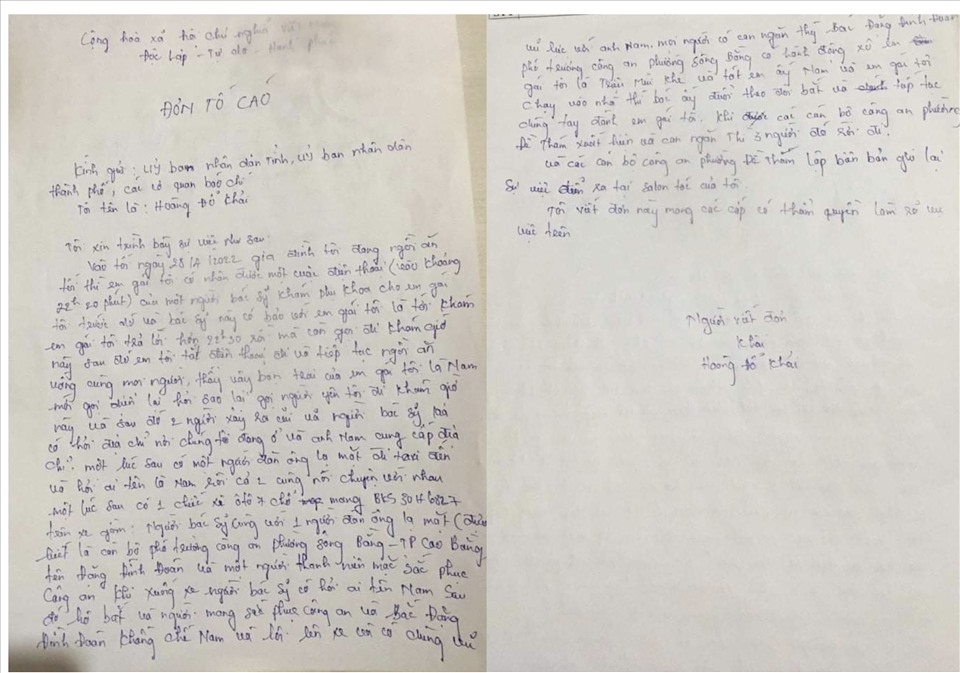 Cộng hoà xã hội chủ nghĩa việt
Độc lập - Tự do - Hạnh phúc
ĐƠN TỐ CÁO
Kính gửi : Uỷ ban nhân dân Tỉnh, Uỷ ban nhân dân
thành phố, các cơ quan báo chí
Tôi tên là : Hoàng Đổ Khải
Tôi xin trình bày sự việc như sau:
Vào tối ngày 28/4/2022 gia đình tôi đang ngồi ăn
tối thì em gái tôi có nhận được một cuộc điện thoại (vào khoảng
22h20 phút) của một người bác sỹ khám phụ khoa cho em gái
tôi trước đó và bác sỹ này có bảo với em gái tôi là tới khám
em gái tôi trả lời hơn 22h30 rồi mà còn gọi đi khám giờ
này sau đó em tôi tắt điện thoại đi và tiếp tục ngồi ăn
uống cùng mọi người, thấy vậy bạn trai của em gái tôi là Nam
mới gọi điện lại hỏi sao lại gọi người yêu tôi đi khám giờ
này và sau đó 2 người xảy ra cãi vã người bác sỹ
có hỏi địa chỉ nơi chúng tôi đang ở và anh Nam cung cấp địa
chỉ. một lúc sau có một người đàn ông lạ mặt đi taxi đến
và hỏi ai tên là Nam rồi cả 2 cùng nói chuyện với nhau
một lúc sau có 1 chiếc xe ôtô 7 chỗ mang BKS 30H 6827
trên xe gồm: Người bác sỹ cùng với 1 người đàn ông lạ mặt (được
biết là cán bộ phó trưởng công an phường Sông Bằng - TP Cao Bằng
tên Đặng Đình Đoàn và một người thanh niên mặc sắc phục
Công an khi xuống xe người bác sỹ có hỏi ai tên Nam sau
đó họ bắt và người mang sắc phục công an và Bác Đặng
Đình Đoàn khống chế Nam và lôi lên xe và có dùng vũ
vũ lực với anh Nam. mọi người có can ngăn thì Bác Đặng Đình Đoàn
phó trưởng công an phường Sông Bằng có hành động xô em
gái tôi là Triệu Mùi Khe và tát em ấy Nam và em gái tôi
chạy vào nhà thì bác ấy đuổi theo đòi bắt và tiếp tục
dùng tay đánh em gái tôi. Khi các cán bộ công an phường
Đề Thám xuất hiện và can ngăn thì 3 người đó rời đi.
và các cán bộ công an phường Đề Thám lập biên bản ghi lại
Sự việc diễn ra tại salon tóc của tôi
Tôi viết đơn này mong các cấp có thẩm quyền làm rõ vụ
việc trên
Người viết đơn
Khải
Hoàng Đổ Khải